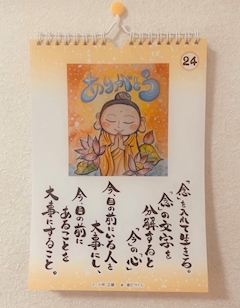 24
ありがとう
「念」を入れて生きる。
「念」の文字を
分解すると
「今」の「心」
今、目の前にいる人を
大事にし、
今、目の前に
あることを
大事にすること。